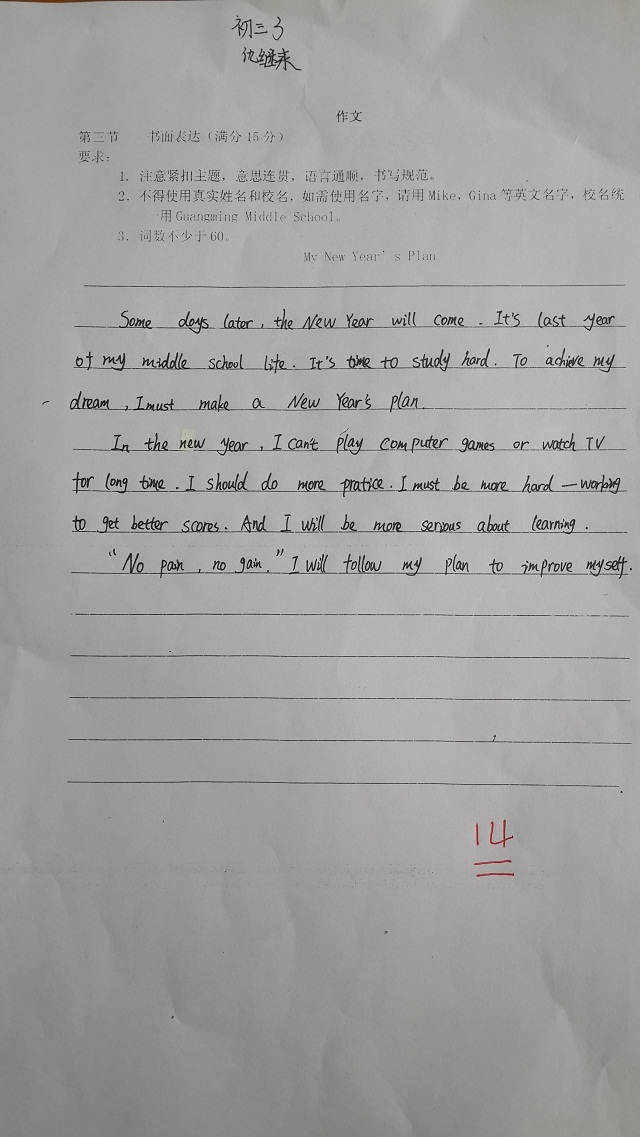 初三3
仇继来
作文
第三节 书面表达（满分15分）
要求：
1. 注意紧扣主题，意思连贯，语言通顺，书写规范。
2. 不得使用真实姓名和校名，如需使用名字，请用Mike，Gina等英文名字，校名统
一用Guangming Middle School。
3. 词数不少于60。
My New Year's Plan
Some days later, the New Year will come. It's last year
of my middle school life. It's time to study hard. To achieve my
dream, I must make a New Year's plan.
In the new year, I can't play computer games or watch TV
for long time. I should do more pratice. I must be more hard—working
to get better scores. And I will be more serious about learning.
"No pain, no gain." I will follow my plan to improve myself.
14